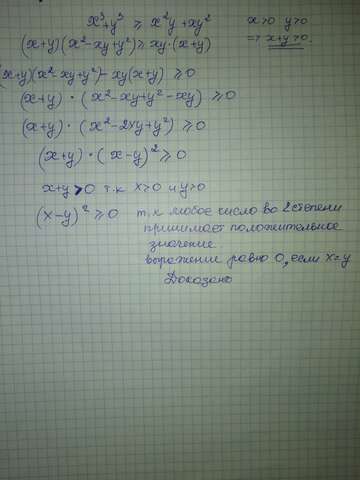 x³+y³ ≥ x²y + xy² x>0 y>0
(x+y)(x²-xy+y²) ≥ xy·(x+y) => x+y>0.
(x+y)(x²-xy+y²) - xy(x+y) ≥0
(x+y) · (x²-xy+y²-xy) ≥0
(x+y) · (x²-2xy+y²) ≥0
(x+y) · (x-y)² ≥0
x+y>0 т.к x>0 и y>0
(x-y)² ≥0 т.к любое число во 2 степени
принимает положительное
значение
выражение равно 0, если x=y
Доказано